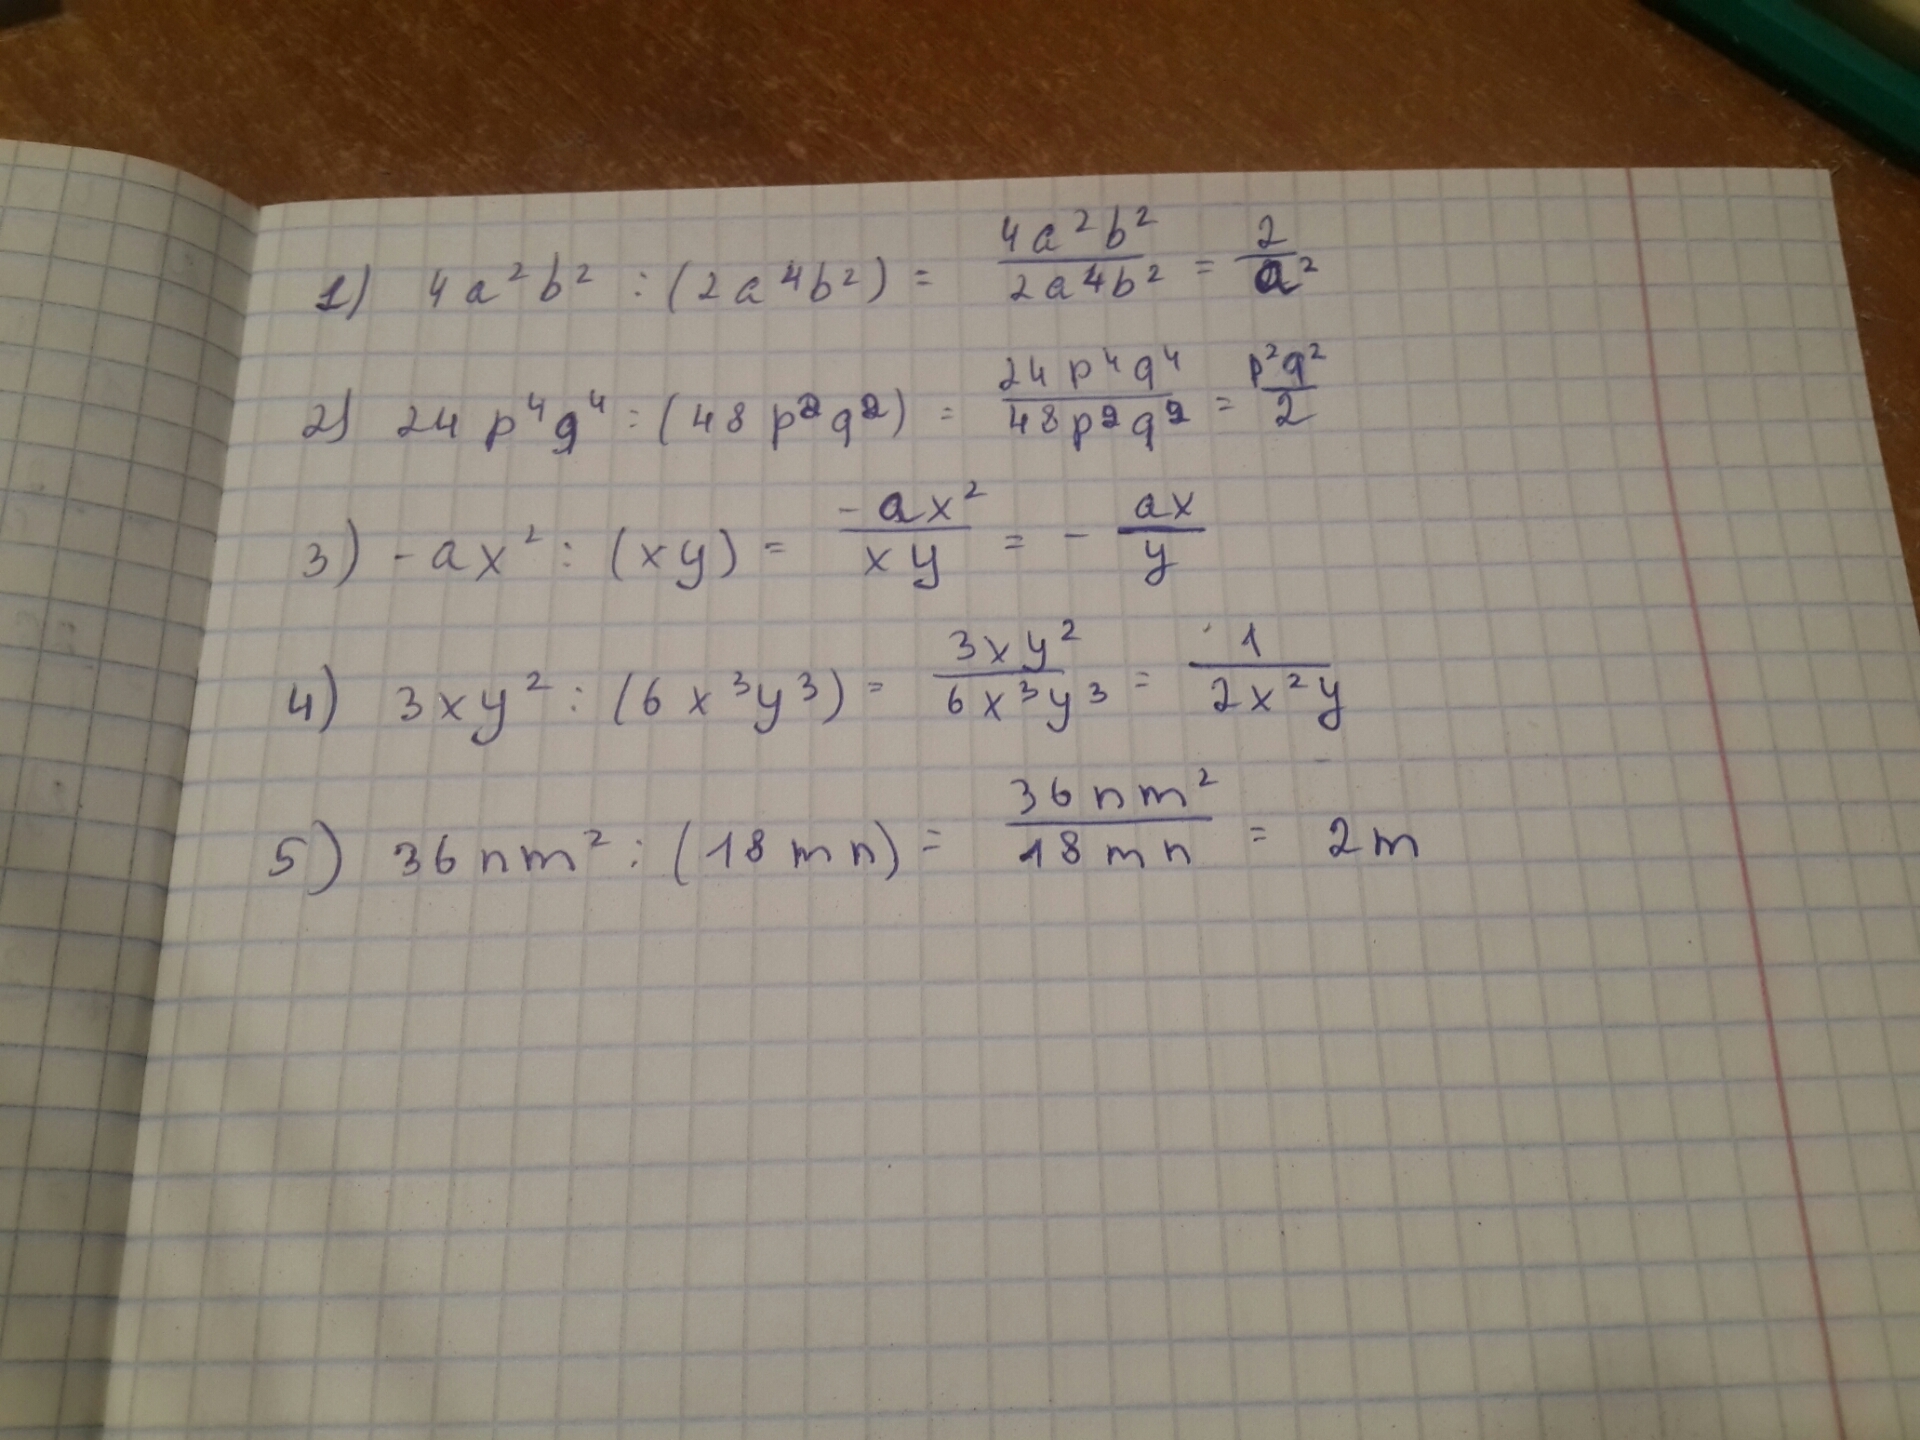 1) 4a²b² : (2a⁴b²) = 4a²b²/2a⁴b² = 2/a²
2) 24p⁴q⁴ : (48p²q²) = 24p⁴q⁴/48p²q² = p²q²/2
3) -ax² : (xy) = -ax²/xy = - ax/y
4) 3xy² : (6x³y³) = 3xy²/6x³y³ = 1/2x²y
5) 36nm² : (18mn) = 36nm²/18mn = 2m